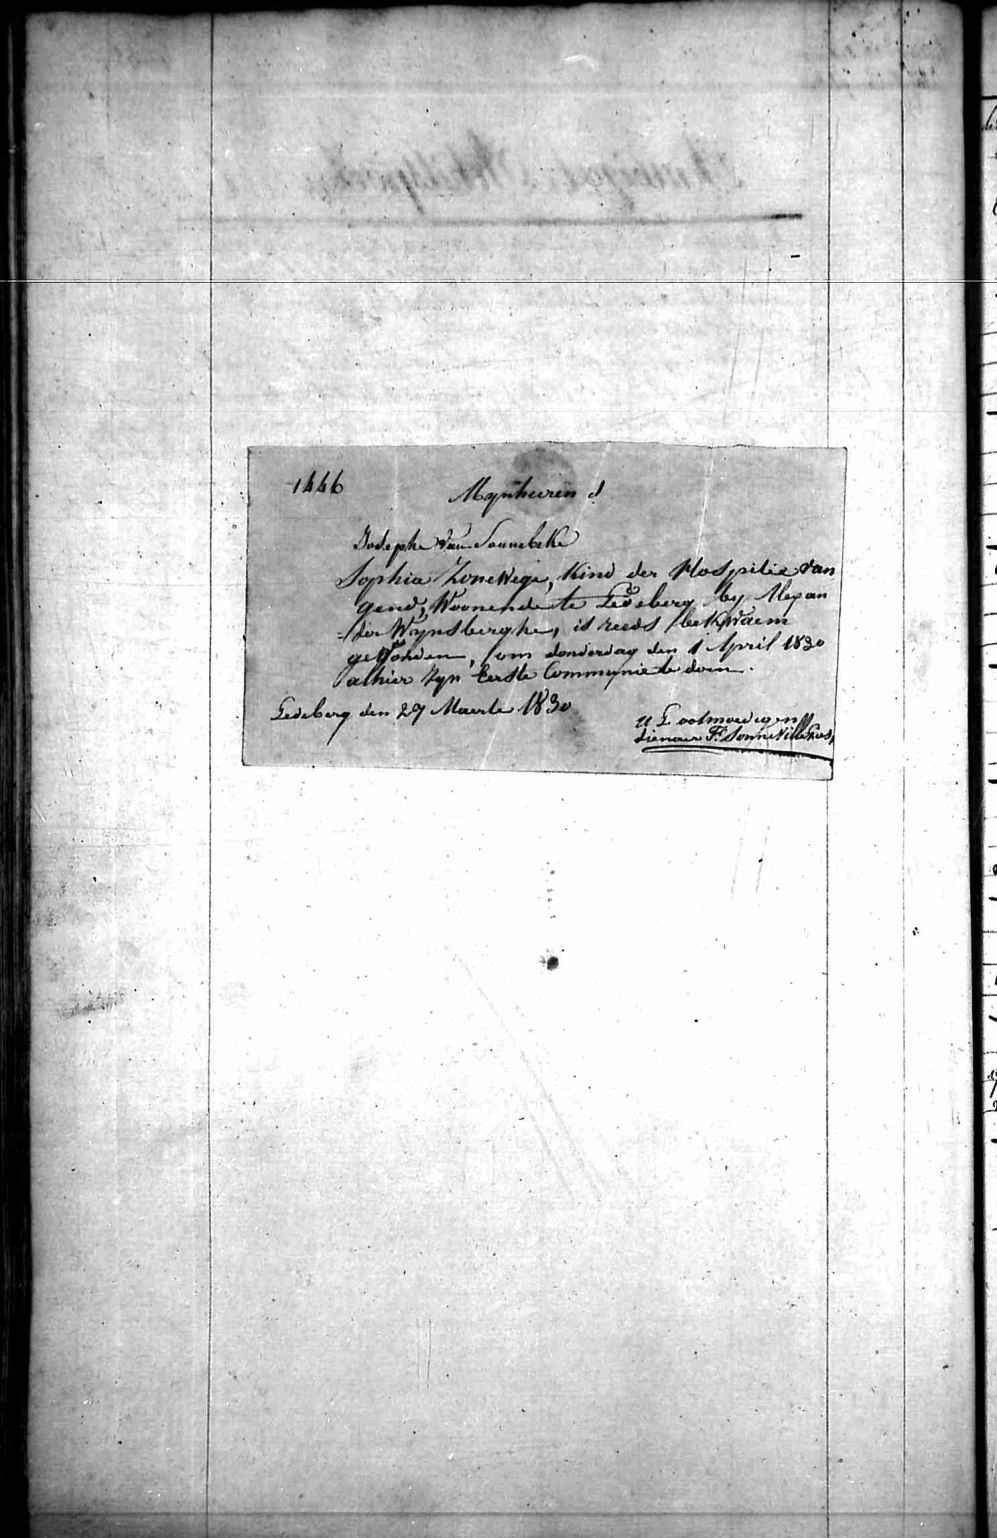 1446
Mynheeren
Josephe Van Sonnebeke
Sophia Zonewege, Kind der Hospitie van
gend, Woonende te Ledeberg by Alexan
der Wynsberghe, is reeds bekwaem
gevonden, om donderdag den 1 April 1830
alhier Zyn Eerste Communie te doen.
Ledeberg den 27 Maerte 1830
U E ootmoedigen
dienaer F. Sonneville